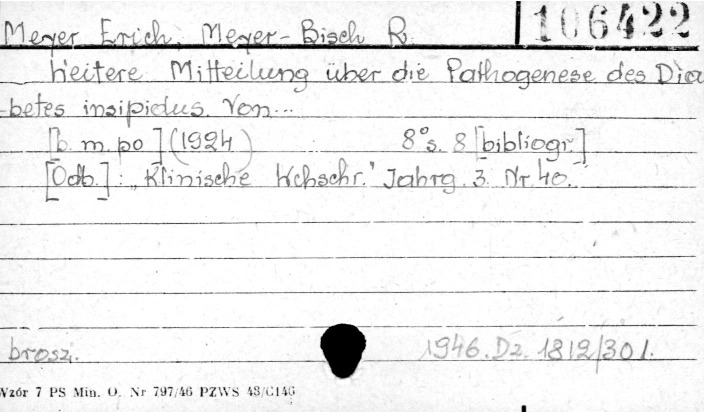 106422
Meyer Erich, Meyer-Bisch R
Weitere Mitteilung über die Pathogenese des Dia
-betes insipidus. Von...
[b. m. po] (1924) 8° s. 8 [bibliogr.]
[Odb.]: „Klinische Wchschr." Jahrg. 3. Nr. 40.
brosz. 1946. Dz. 1812/301.
Wzór 7 PS Min. O. Nr 797/46 PZWS 48/C146